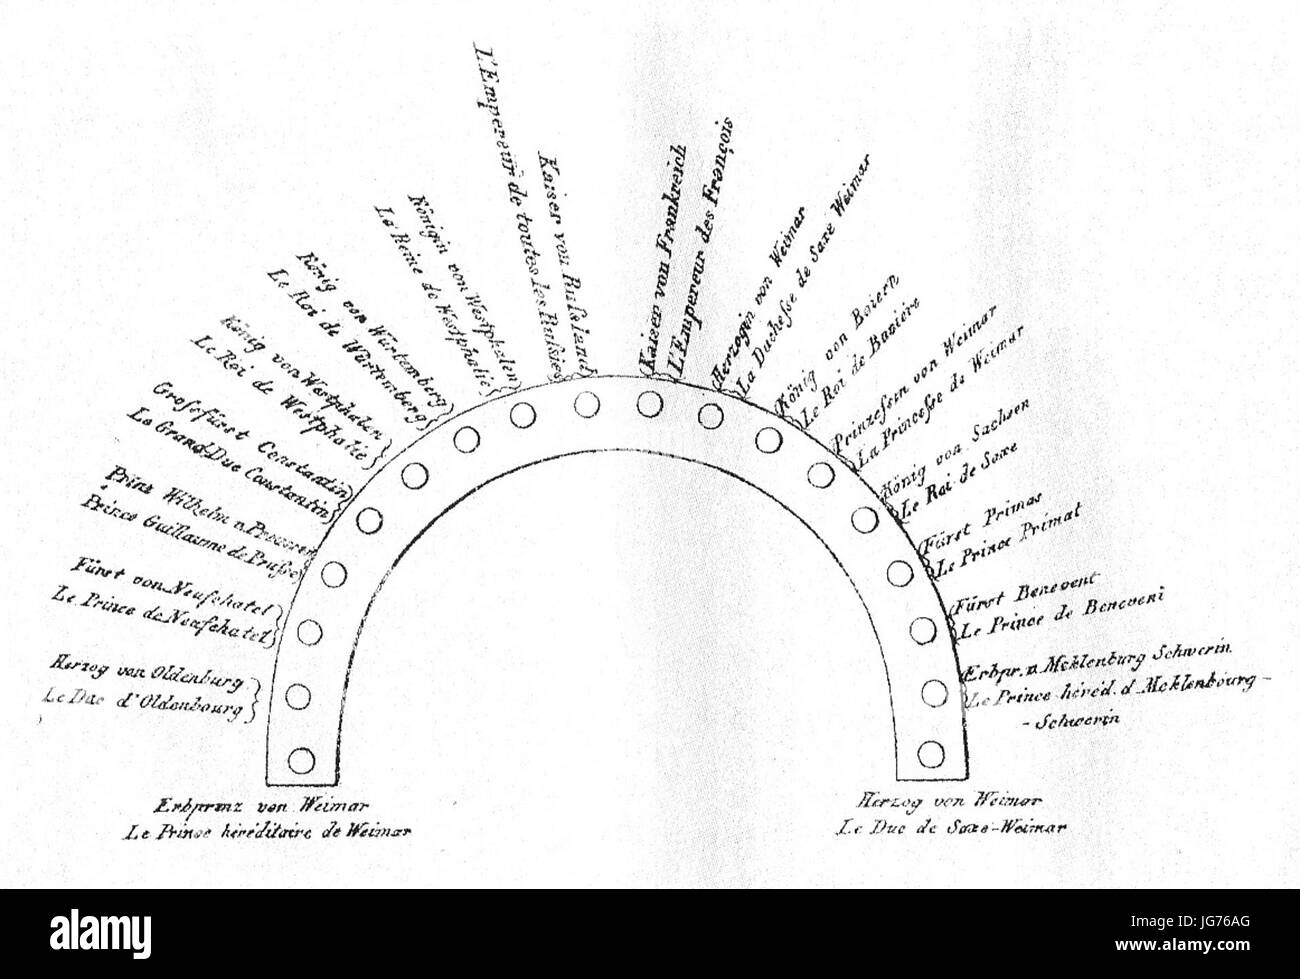 Erbprinz von Weimar
Le Prince héréditaire de Weimar
Herzog von Oldenburg
Le Duc d'Oldenbourg
Fürst von Neufchatel
Le Prince de Neufchatel
Prinz Wilhelm v. Preussen
Prince Guillaume de Prusse
Grossfürst Constantin
Le Grand Duc Constantin
König von Westphalen
Le Roi de Westphalie
König von Würtemberg
Le Roi de Würtemberg
Königin von Westphalen
La Reine de Westphalie
L'Empereur de toutes les Russies
Kaiser von Russland
Kaiser von Frankreich
L'Empereur des François
Herzogin von Weimar
La Duchesse de Saxe Weimar
König von Baiern
Le Roi de Baviére
Prinzessin von Weimar
La Princesse de Weimar
König von Sachsen
Le Roi de Saxe
Fürst Primas
Le Prince Primat
Fürst Benevent
Le Prince de Benevent
Erbpr. v. Meklenburg Schwerin
Le Prince héréd. d. Meklenbourg-
-Schwerin
Herzog von Weimar
Le Duc de Saxe-Weimar
alamy
Image ID: JG76AG
www.alamy.com